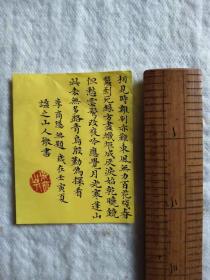 相見時難別亦難東風無力百花殘春
蠶到死絲方盡蠟炬成灰淚始乾曉鏡
但愁雲鬢改夜吟應覺月光寒蓬山
此去無多路青鳥殷勤為探看
李商隱無題 歲在壬寅夏
之山人敬書